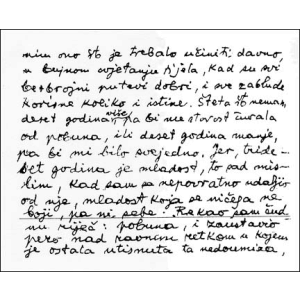 nim ono što je trebalo učiniti davno,
u bujnom cvjetanju tijela, kad su svi
bezbrojni putevi dobri, i sve zablude
korisne koliko i istine. Šteta što nemam
deset godina više, pa bi me starost čuvala
od pobuna, ili deset godina manje,
pa bi mi bilo svejedno. Jer, tride-
set godina je mladost, to sad mis-
lim, kad sam se nepovratno udaljio
od nje, mladost koja se ničega ne
boji, pa ni sebe. Rekao sam čud
nu riječ: pobuna, i zaustavio
pero nad ravnim retkom u kojem
je ostala utisnuta ta nedoumica,